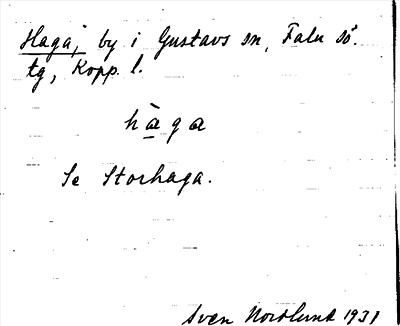 Haga, by i Gustavs sn, Falu sö.
tg, Kopp. l.
hàga
Se Storhaga.
Sven Nordlund 1931